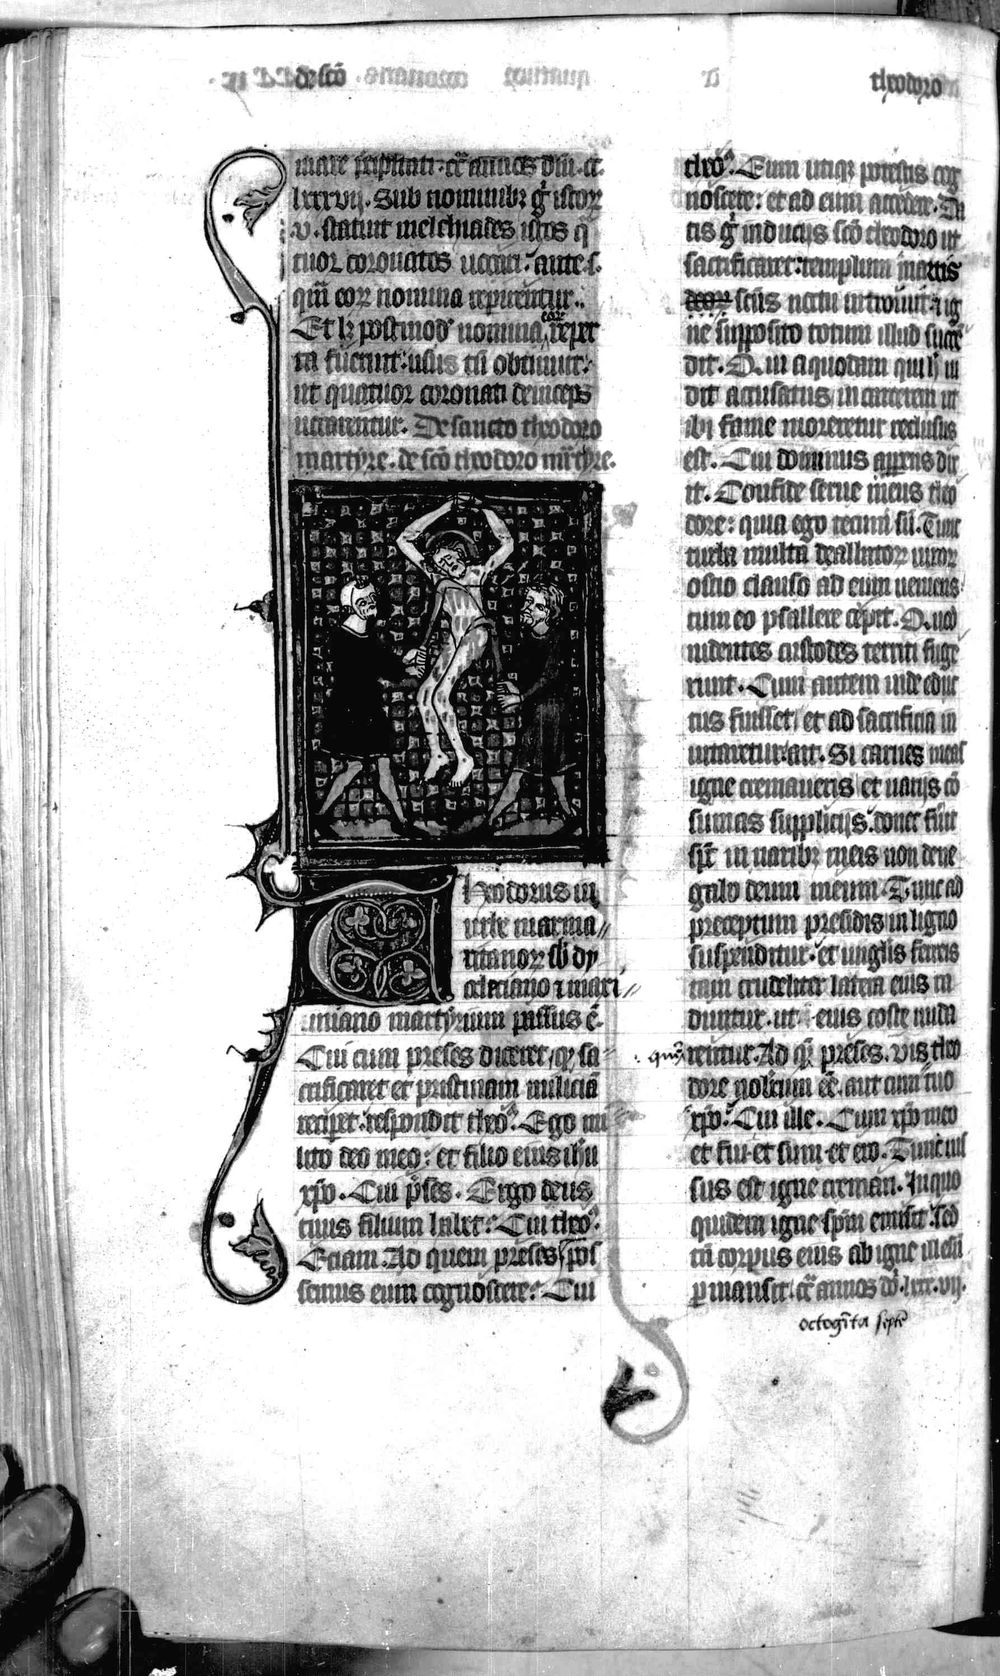 de scō theodoro
lxxxvij. Sub nominibꝫ gͥ istoꝝ
v. statuit melchiades istos qͣ
tuor coronatos uocari: ante.
quā eoꝝ nomina repirentur..
Et lꝫ postmodꝰ nomina eoꝝ reper
ta fuerint: usus tn̄ obtinuit:
ut quatuor coronati deinceps
uocarentur. De sancto theodoro
martyre. de scō theodoro mr̄tyre.
Theodorus in
urbe marma„
ritanoꝝ sb̄ dy
ocleciano ⁊ maxi„
miano martyrium passus ē.
Cui cum preses diceret qꝫ sa„
crificaret et pristinam miliciā
reciperet: respondit theo᷒. Ego mi
lito deo meo: et filio eius ihū
xp̄o. Cui p̄ses. Ergo deus
tuus filium habet: Cui theo᷒.
Eciam. Ad quem preses pos
sumus eum cognoscere: Cui
theo᷒. Eum utiqꝫ potestis cog
noscere: et ad eum accedere. Da
tis gͥ inducijs scō theodoro ut
sacrificaret: templum martis
scūs noctu introiuit ⁊ ig
ne supposito totum illud succē
dit. Q̄ ui a quodam qui ij ui
dit accusatus in carcerem ut
ibi fame moreretur reclusus
est. Cui dominus apparens dix
it. Confide serue meus theo
dore: quia ego tecum sū. Tunc
turba multa dealbatoꝝ uiroꝝ
ostio clauso ad eum ueniens
cum eo psallere cepit. Quod
uidentes custodes territi fuge
runt. Cum autem inde educ
tus fuisset et ad sacrificia in
uitaretur: ait. Si carnes meas
igne cremaueris et uarijs cō
sumas supplicijs: donec fuit
spc̄ in naribꝫ meis non dene
gabo deum meum. Tunc ad
preceptum presidis in ligno
suspenditur: et unglis ferreis
tam crudeliter latera eius ra
duntur. ut eius coste nuda
rentur. Ad qͣ preses. vis theo
dore nobiscum eē. aut cum tuo
xp̄o: Cui ille. Cum xp̄o meo
et fui et sum et ero. Tunc ius
sus est igne cremari. In quo
quidem igne spm̄ emisit. sed
tn̄ corpus eius ab igne illesū
ꝑmansit. cͣ annos dō. lxxx.vij.
octogīta septē